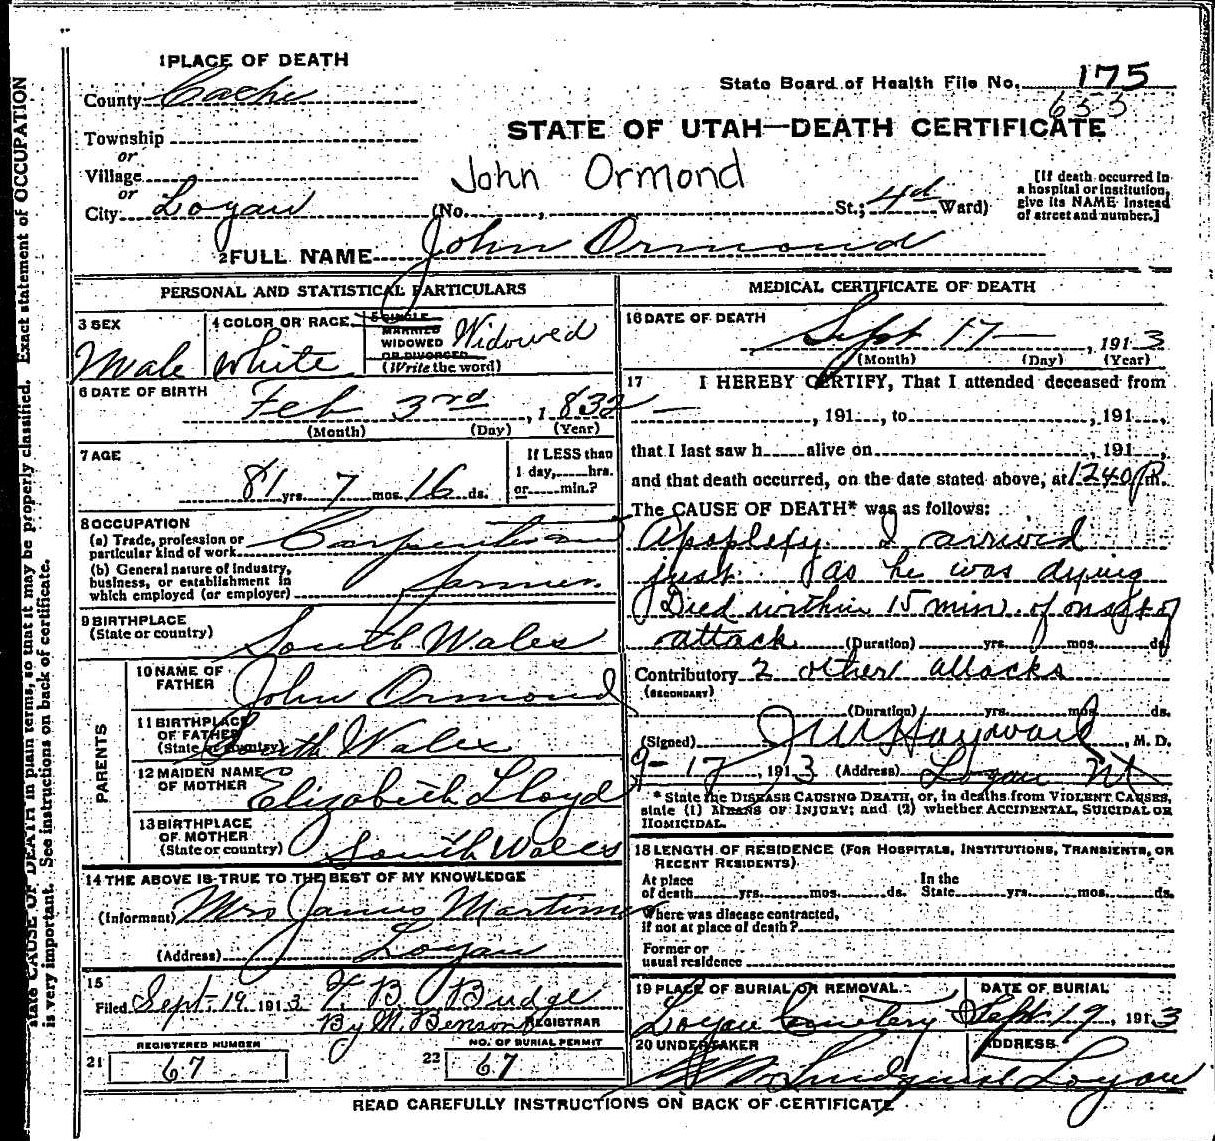 1 PLACE OF DEATH
County Cache
State Board of Health File No. 175
653
Township
or
Village
or
City Logan
STATE OF UTAH—DEATH CERTIFICATE
John Ormond
(No. , St.; 4th Ward)
[If death occurred in a hospital or institution, give its NAME instead of street and number.]
2 FULL NAME John Ormond
PERSONAL AND STATISTICAL PARTICULARS
3 SEX
Male
4 COLOR OR RACE
White
5 SINGLE
MARRIED
WIDOWED
OR DIVORCED
(Write the word)
Widowed
6 DATE OF BIRTH
Feb 3rd, 1832
(Month) (Day) (Year)
7 AGE
81 yrs. 7 mos. 16 ds.
If LESS than
1 day, hrs.
or min.?
8 OCCUPATION
(a) Trade, profession or
particular kind of work
(b) General nature of industry,
business, or establishment in
which employed (or employer)
farmer.
9 BIRTHPLACE
(State or country)
South Wales
PARENTS
10 NAME OF
FATHER
John Ormond
11 BIRTHPLACE
OF FATHER
(State or country)
South Wales
12 MAIDEN NAME
OF MOTHER
Elizabeth Lloyd
13 BIRTHPLACE
OF MOTHER
(State or country)
South Wales
14 THE ABOVE IS TRUE TO THE BEST OF MY KNOWLEDGE
(Informant) Mrs James
(Address) Logan
15
Filed Sept. 19, 1913 T B Budge
By M. Benson REGISTRAR
21
REGISTERED NUMBER
67
22
NO. OF BURIAL PERMIT
67
MEDICAL CERTIFICATE OF DEATH
16 DATE OF DEATH
Sept 17, 1913
(Month) (Day) (Year)
17 I HEREBY CERTIFY, That I attended deceased from
, 191 , to , 191 ,
that I last saw h alive on , 191 ,
and that death occurred, on the date stated above, at 1240 P.m.
The CAUSE OF DEATH* was as follows:
Apoplexy. I arrived
just as he was dying
Died within 15 min. of onset of
attack (Duration) yrs. mos. ds.
Contributory 2 other attacks
(SECONDARY)
(Duration) yrs. mos. ds.
(Signed) J W Hayward, M. D.
9-17, 1913 (Address) Logan Ut
* State the DISEASE CAUSING DEATH, or, in deaths from VIOLENT CAUSES,
state (1) MEANS OF INJURY; and (2) whether ACCIDENTAL, SUICIDAL OR
HOMICIDAL.
18 LENGTH OF RESIDENCE (FOR HOSPITALS, INSTITUTIONS, TRANSIENTS, OR
RECENT RESIDENTS)
At place
of death yrs. mos. ds.
In the
State yrs. mos. ds.
Where was disease contracted,
if not at place of death?
Former or
usual residence
19 PLACE OF BURIAL OR REMOVAL
Logan Cemetery
DATE OF BURIAL
Sept. 19, 1913
20 UNDERTAKER
ADDRESS
Logan
READ CAREFULLY INSTRUCTIONS ON BACK OF CERTIFICATE
state CAUSE OF DEATH in plain terms, so that it may be properly classified. Exact statement of OCCUPATION
is very important. See instructions on back of certificate.